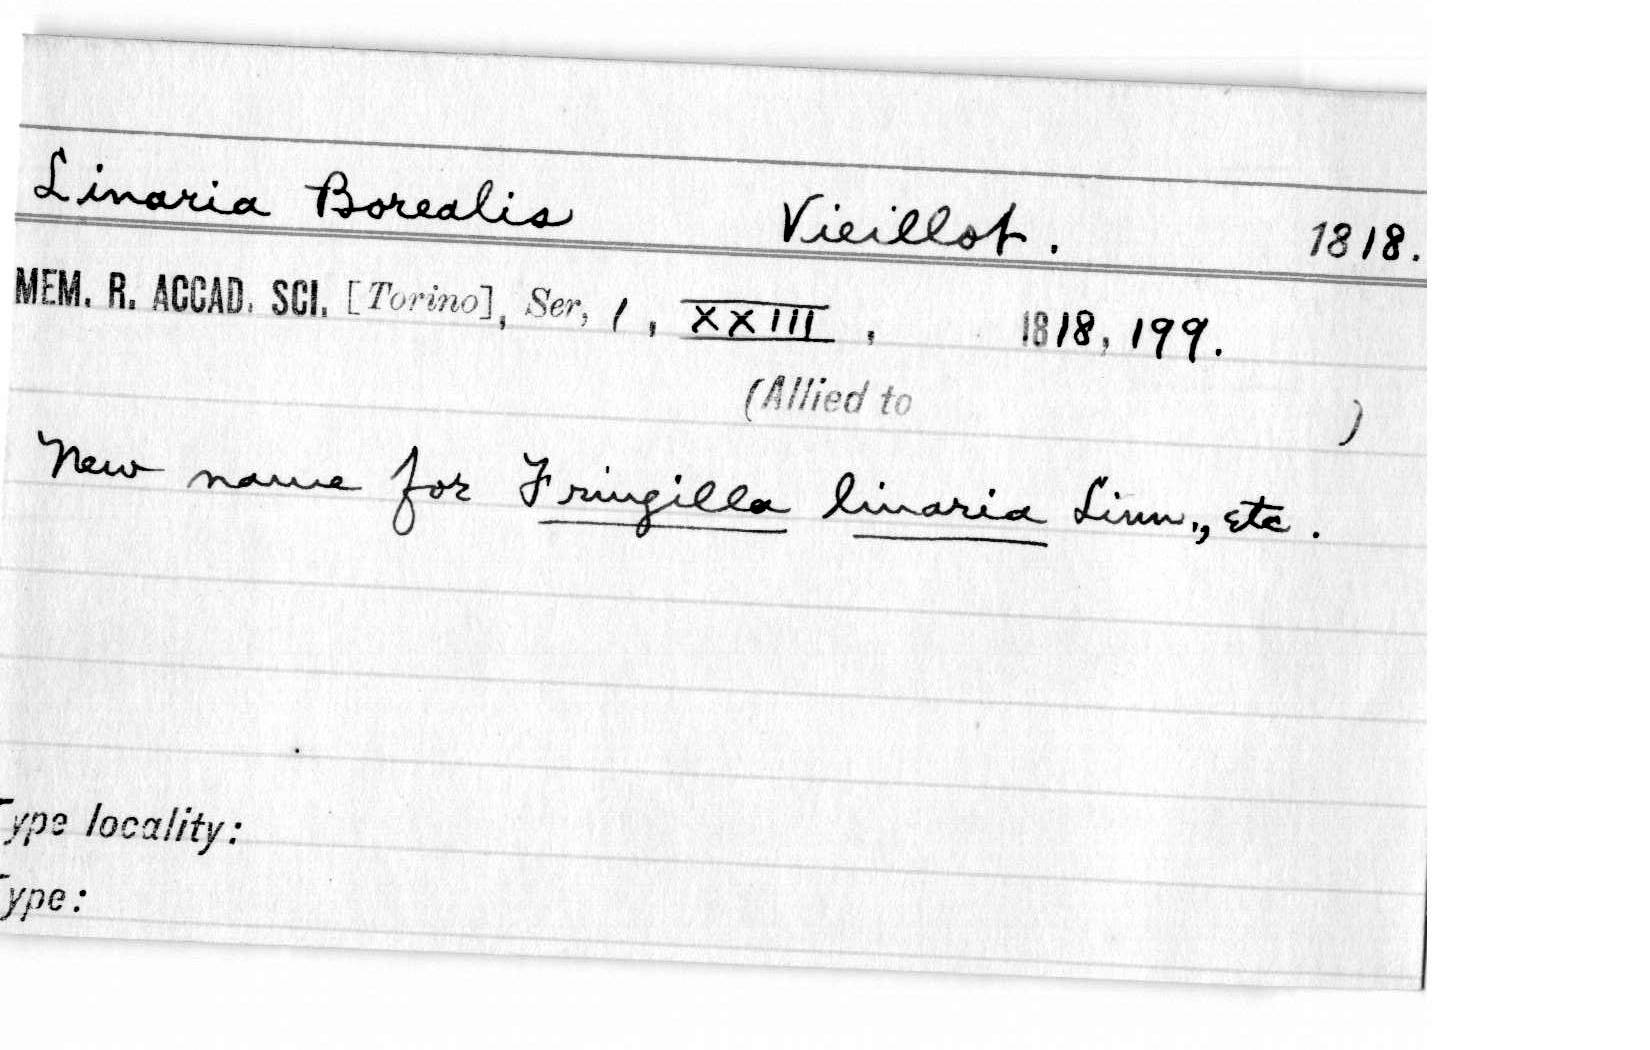 Linaria Borealis Vieillot. 1818.
MEM. R. ACCAD. SCI. [Torino], Ser, 1, XXIII, 1818, 199.
(Allied to )
New name for Fringilla linaria Linn., etc.
Type locality:
Type: